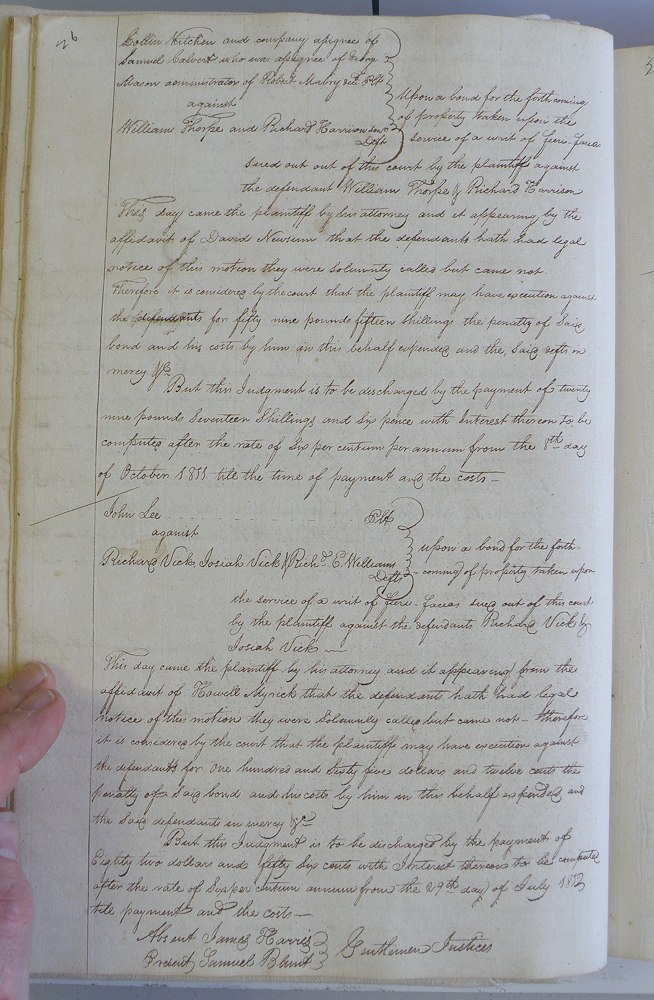 26
Collin Kitchen and company assignee of
Samuel Calvert who was assignee of
Mason administrator of Robert Mabry decd. Plt
against
William Thorpe and Richard Harrison
Deft
Upon a bond for the forthcoming
of property taken upon the
service of a writ of fieri-facias
sued out out of this court by the plaintiff against
the defendant William Thorpe & Richard Harrison
This day came the plaintiff by his attorney and it appearing by the
affidavit of David Newsum that the defendants hath had legal
notice of this motion they were solemnly called but came not
Therefore it is considered by the court that the plaintiff may have execution against
the defendants for fifty nine pounds fifteen shillings the penalty of said
bond and his costs by him in this behalf expended and the said defts in
mercy &c
But this Judgment is to be discharged by the payment of twenty
nine pounds Seventeen Shillings and Six pence with Interest thereon to be
computed after the rate of Six per centum per annum from the 8th day
of October 1811 till the time of payment and the costs—
John Lee Plt
against
Richard Vick, Josiah Vick & Richd. E. Williams
Defts
upon a bond for the forth-
coming of property taken upon
the service of a writ of fieri-facias sued out of this court
by the plaintiff against the defendants Richard Vick &
Josiah Vick —
This day came the plaintiff by his attorney and it appearing from the
affidavit of Howell Myrick that the defendants hath had legal
notice of this motion they were Solemnly called but came not – therefore
it is considered by the court that the plaintiff may have execution against
the defendants for One hundred and Sixty five dollars and twelve cents the
penalty of Said bond and his costs by him in this behalf expended and
the Said defendants in mercy &c
But this Judgment is to be discharged by the payment of
Eighty two dollars and fifty Six cents with Interest thereon to be computed
after the rate of Six per centum annum from the 29th day of July 1812
till payment and the costs—
Absent James Harris
Present Samuel Blunt
Gentlemen Justices